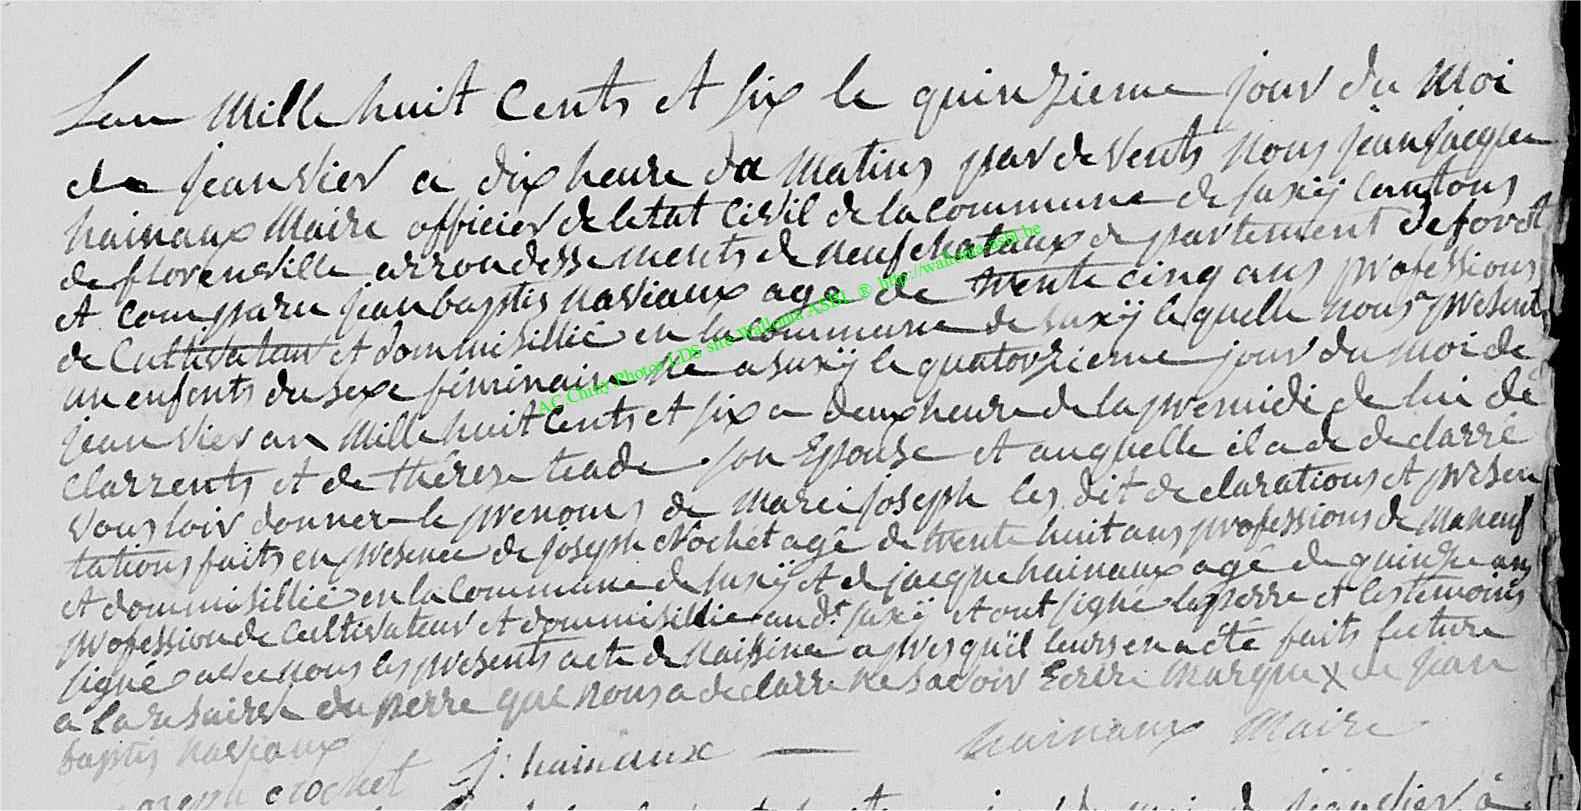 Lan Mille huit Cents et six le quinzieme jour du Moi
de jeanvier a dix heure da Matins pardevents nous jean jacque
hainaux Maire officier de letat Civil de la commune de suxÿ Cantons
de florenville arrondessements de neufchateaux departement de forét
et comparu jean baptis naviaux agé de trente cinq ans professions
de Cultivateur et dommisillié en la commune de suxÿ lequelle nous a present
un enfents du sexe féminain né a suxÿ le quatorzieme jour du moi de
jeanvier an Mille huit Cents et six a deux heure de la premidi de lui dé
clarrents et de thérese son Epouse et auquelle il a de declarré
vousloir donner le prenoms de Marei joseph les dit declarations et presen
tations faits en presence de joseph Crochet agé de trente huit ans professions de Maneuf
et dommisillié en la Commune de suxÿ et de jacque hainaux agé de quindze ans
profession de Cultivateur et dommisillié aud.t suxÿ et ont signé le perre et les temoins
signé avec nous les presents acte de naissince apres qu'il leurs en a été faits lecture
a la resairve du perre que nous a declarre ne savoir Ecrire Marque x de jean
baptis naviaux
joseph crochet j: hainaux hainaux Maire